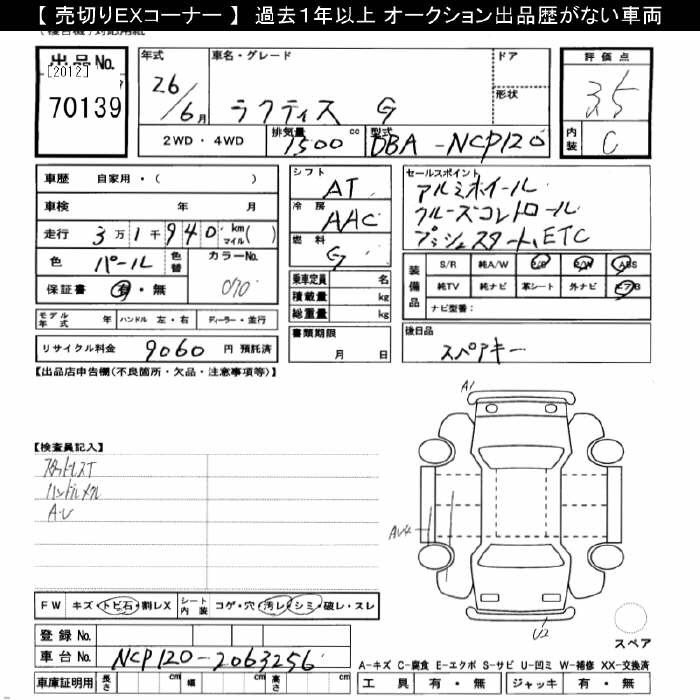 【 売切りEXコーナー 】 過去１年以上 オークション出品歴がない車両
出品No. [2012] 70139
年式 26/6月
車名・グレード ラクティス G
ドア
形状
評価点 3.5
内装 C
2WD・4WD
排気量 1500 cc
型式 DBA-NCP120
車歴 自家用・( )
車検 年 月
走行 3万1千940 km マイル( )
色 パール 色替 カラーNo. 070
保証書 有・無
モデル年式 年 ハンドル 左・右 ディーラー・並行
リサイクル料金 9060 円 預託済
シフト AT
冷房 AAC
燃料 G
乗車定員 名
積載量 kg
総重量 kg
書類期限
月 日
セールスポイント
アルミホイール
クルーズコントロール
プッシュスタート、ETC
装備品 S/R 純A/W P/S P/W ABS
純TV 純ナビ 革シート 外ナビ エアB
ナビ型番：
後日品
スペアキー
【出品店申告欄(不良箇所・欠品・注意事項等)】
【検査員記入】
A-U
A1
U2
FW キズ・トビ石・割レX シート内装 コゲ・穴・汚レ・シミ・破レ・スレ
登録No.
車台No. NCP120-2063256
スペア
A-キズ C-腐食 E-エクボ S-サビ U-凹ミ W-補修 XX-交換済
車庫証明用 長さ cm 幅 cm 高さ cm
工具 有・無 ジャッキ 有・無